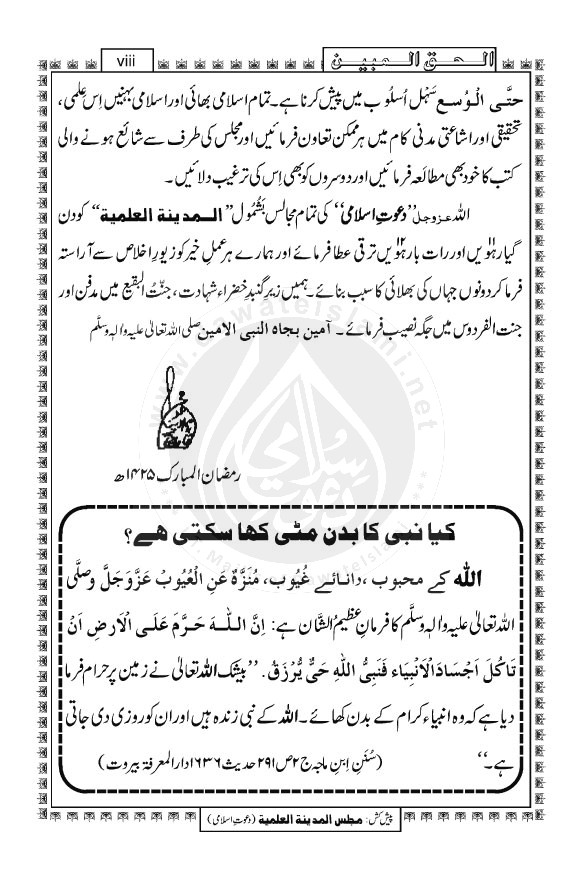 الحق المبین
viii
حتَّی الْوُسع سَہْل اُسلُوب میں پیش کرنا ہے۔ تمام اسلامی بھائی اور اسلامی بہنیں اِس عِلمی،
تحقیقی اور اشاعتی مدنی کام میں ہر ممکن تعاون فرمائیں اور مجلس کی طرف سے شائع ہونے والی
کتب کا خود بھی مطالعہ فرمائیں اور دوسروں کو بھی اِس کی ترغیب دلائیں۔
اللہ عزوجل ’’دعوتِ اسلامی‘‘ کی تمام مجالس بَشُمُول ’’المدینۃ العلمیۃ‘‘ کو دن
گیارہویں اور رات بارہویں ترقی عطا فرمائے اور ہمارے ہر عملِ خیر کو زیورِ اخلاص سے آراستہ
فرما کر دونوں جہاں کی بھلائی کا سبب بنائے۔ ہمیں زیرِ گنبدِ خضراء شہادت، جنّت البقیع میں مدفن اور
جنت الفردوس میں جگہ نصیب فرمائے۔ آمین بجاہ النبی الامین صلی اللہ تعالیٰ علیہ والہ وسلَّم
رمضان المبارک ۱۴۲۵ھ
کیا نبی کا بدن مٹی کھا سکتی ھے؟
اللہ کے محبوب، دانائے غُیُوب، مُنَزَّہٌ عَنِ الْعُیُوب عَزَّوَجَلَّ وصلَّی
اللہ تعالیٰ علیہ والہ وسلَّم کا فرمانِ عظیمُ الشَّان ہے: اِنَّ اللّٰہَ حَرَّمَ عَلَی الْاَرضِ اَنْ
تَاکُلَ اَجْسَادَ الْاَنْبِیَاء فَنَبِیُّ اللّٰہِ حَیٌّ یُّرْزَقُ. ’’بیشک اللہ تعالیٰ نے زمین پر حرام فرما
دیا ہے کہ وہ انبیاء کرام کے بدن کھائے۔ اللہ کے نبی زندہ ہیں اور ان کو روزی دی جاتی
ہے۔‘‘ (سُنَنِ اِبنِ ماجہ ج ۲ ص ۲۹۱ حدیث ۱۶۳۶ دار المعرفۃ بیروت)
پیش کش: مجلس المدینۃ العلمیۃ (دعوتِ اسلامی)